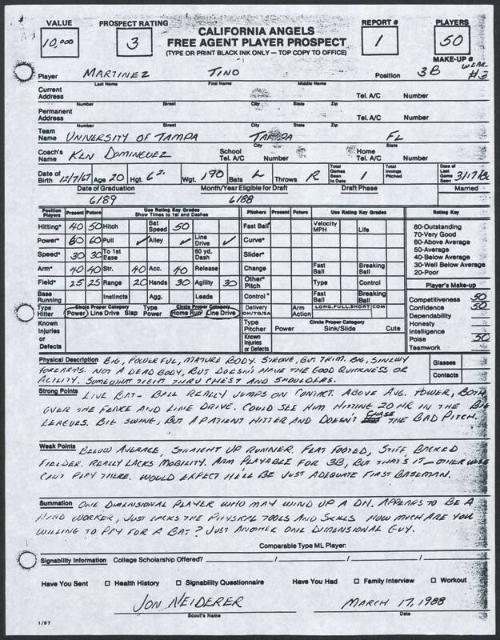 VALUE
10,000
PROSPECT RATING
3
CALIFORNIA ANGELS
FREE AGENT PLAYER PROSPECT
(TYPE OR PRINT BLACK INK ONLY — TOP COPY TO OFFICE)
REPORT #
1
PLAYERS
50
MAKE-UP #
Player MARTINEZ TINO Position 3B
Last Name First Name Middle Name
Current Address Tel. A/C Number
Number Street City State Zip
Permanent Address Tel. A/C Number
Number Street City State Zip
Team Name UNIVERSITY OF TAMPA TAMPA FL
City State
Coach's Name KEN DOMINGUEZ School Tel. A/C Number Home Tel. A/C Number
Date of Birth 12/7/67 Age 20 Hgt. 6 2 Wgt. 190 Bats L Throws R Total Games Seen In 1 Total Innings Pitched Date of Last Game Seen 3/17/88
Date of Graduation Month/Year Eligible for Draft Draft Phase Married
6/89 6/88
Position Players Present Future Use Rating Key Grades Show Times to 1st and Dashes Pitchers Present Future Use Rating Key Grades Rating Key
Hitting* 40 50 Hitch Bat Speed 50 Fast Ball* Velocity MPH Life 80-Outstanding
Power* 60 60 Pull ✓ Alley ✓ Line Drive ✓ Curve* 70-Very Good
Speed* 30 30 To 1st Base 60 yd. Dash Slider* 60-Above Average
50-Average
Arm* 40 40 Str. 40 Acc. 40 Release Change Fast Ball Breaking Ball 40-Below Average
30-Well Below Average
Field* 25 25 Range 20 Hands 30 Agility 30 Other Type Control 20-Poor
Base Running Instincts Agg. Leads Control* Fast Ball Breaking Ball Player's Make-up
Type Hitter Circle Proper Category Power Line Drive Slap Type Power Circle Proper Category Home Run Line Drive Delivery OH/TQ/SA Arm Action LONG,FULL,SHORT,COMP. Competitiveness 50
Confidence 50
Known Injuries or Defects Type Pitcher Circle Proper Category Power Sink/Slide Cute Dependability
Honesty
Intelligence
Known Injuries or Defects Poise 50
Teamwork
Physical Description BIG, POWERFUL, MATURE BODY. STRONG, BUT TRIM. BIG, SINEWY Glasses
FOREARMS. NOT A DEAD BODY, BUT DOESN'T HAVE THE GOOD QUICKNESS OR Contacts
AGILITY. SOMEWHAT TIGHT THRU CHEST AND SHOULDERS.
Strong Points LIVE BAT - BALL REALLY JUMPS ON CONTACT. ABOVE AVG. POWER, BOTH
OVER THE FENCE AND LINE DRIVE. COULD SEE HIM HITTING 20 HR IN THE BIG
LEAGUES. BIG SWING, BUT A PATIENT HITTER AND DOESN'T CHASE THE BAD PITCH.
Weak Points BELOW AVERAGE, STRAIGHT UP RUNNER. FLAT FOOTED, STIFF, BACKED
FIELDER. REALLY LACKS MOBILITY. ARM PLAYABLE FOR 3B, BUT THAT'S IT — OTHERWISE
CAN'T PLAY THERE. WOULD EXPECT HE'LL BE JUST ADEQUATE FIRST BASEMAN.
Summation ONE DIMENSIONAL PLAYER WHO MAY WIND UP A DH. APPEARS TO BE A
HARD WORKER, JUST LACKS THE PHYSICAL TOOLS AND SKILLS. HOW MUCH ARE YOU
WILLING TO PAY FOR A BAT? JUST ANOTHER ONE DIMENSIONAL GUY.
Comparable Type ML Player:
Signability Information College Scholarship Offered?
Have You Sent □ Health History □ Signability Questionnaire Have You Had □ Family Interview □ Workout
JON NEIDERER MARCH 17, 1988
Scout's Name Date
1/87